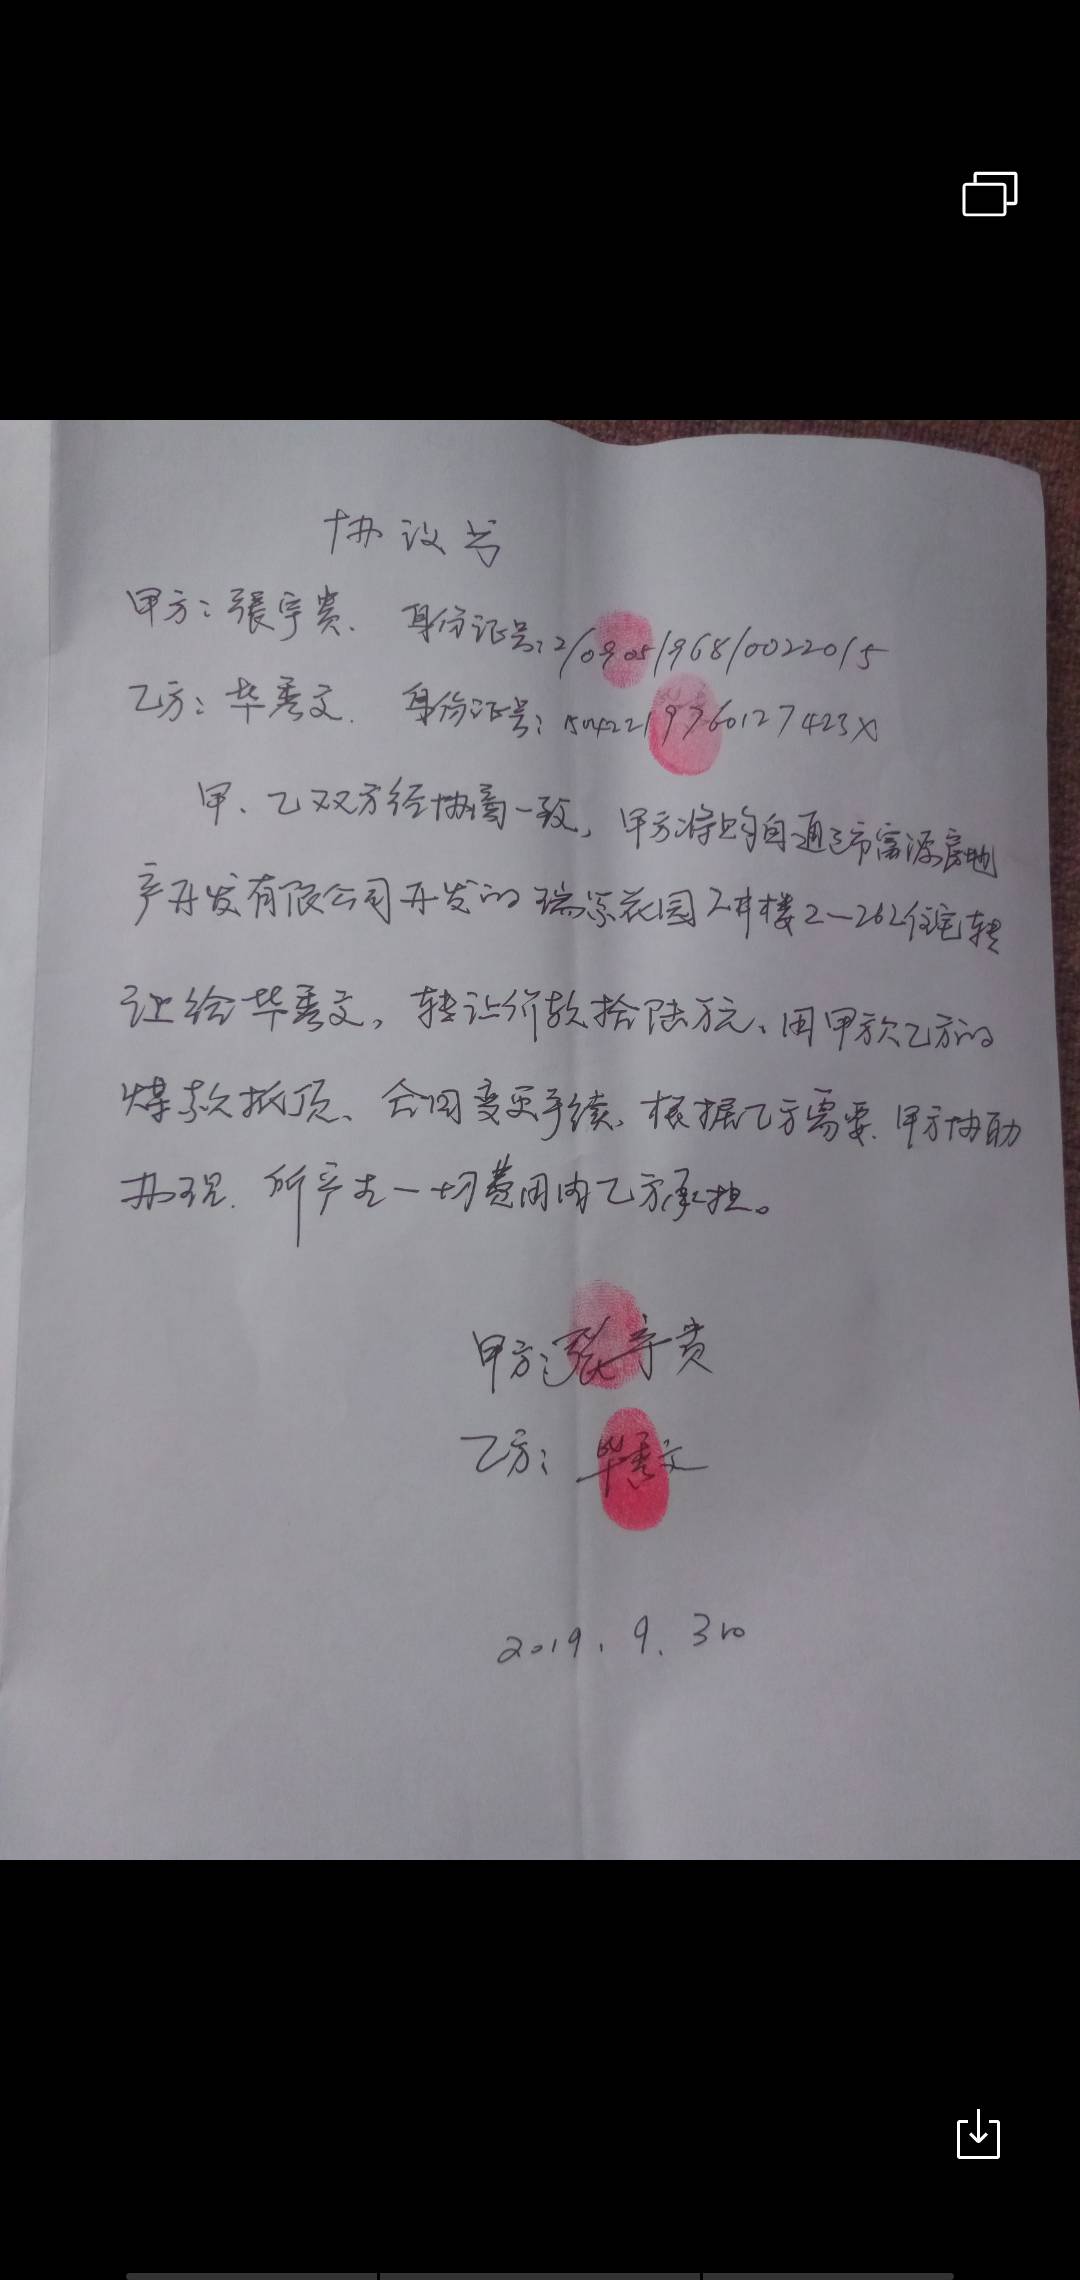 协议书
甲方：张宇贵. 身份证号:210905196810022015
乙方：毕秀文. 身份证号：15042219760127423X
甲、乙双方经协商一致，甲方将购自通辽市富源房地
产开发有限公司开发的瑞京花园2#楼2—262住宅转
让给毕秀文，转让价款拾陆万元、用甲方欠乙方的
煤款抵顶、合同变更手续，根据乙方需要.甲方协助
办理.所产生一切费用由乙方承担。
甲方：张宇贵
乙方：毕秀文
2019.9.3